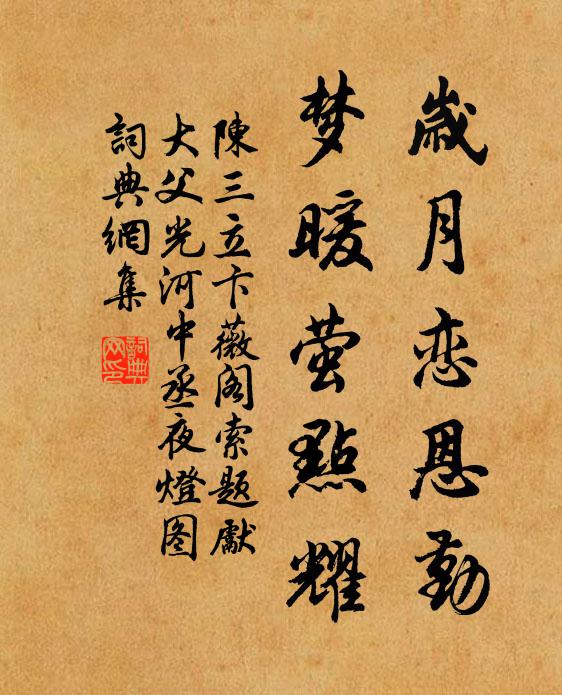 歳月恋恩勤
梦暖萤點耀
陳三立卞薇阁索题獻
大父光河中丞夜燈图
詞典網集
詞典
网印